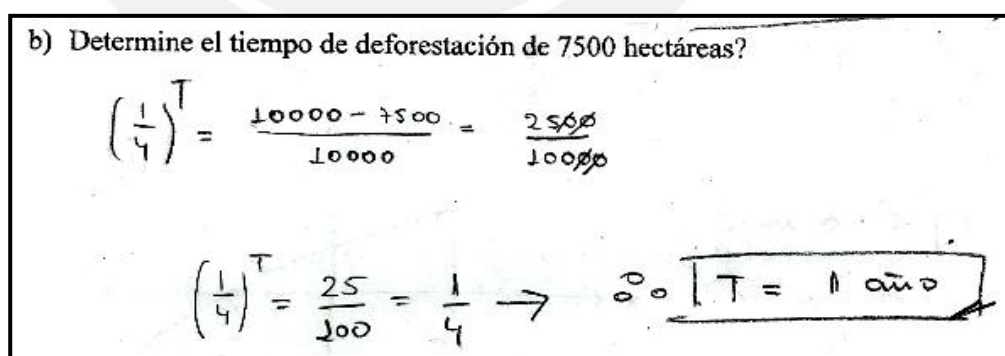 b) Determine el tiempo de deforestación de 7500 hectáreas?
(1/4)^T = (10000 - 7500)/10000 = 2500/10000
(1/4)^T = 25/100 = 1/4 → ∴ T = 1 año